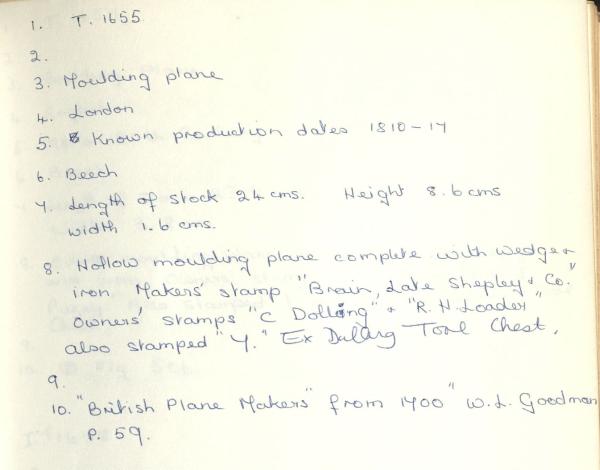 1. T. 1655
2.
3. Moulding plane
4. London
5. Known production dates 1810-17
6. Beech
7. Length of stock 24 cms. Height 8.6 cms
width 1.6 cms.
8. Hollow moulding plane complete with wedge &
iron. Makers' stamp "Brain, Late Shepley & Co."
Owners' stamps "C Dolling" & "R. H. Loader"
also stamped "7." Ex Tool Chest.
9.
10. "British Plane Makers" from 1700" W. L. Goodman
P. 59.